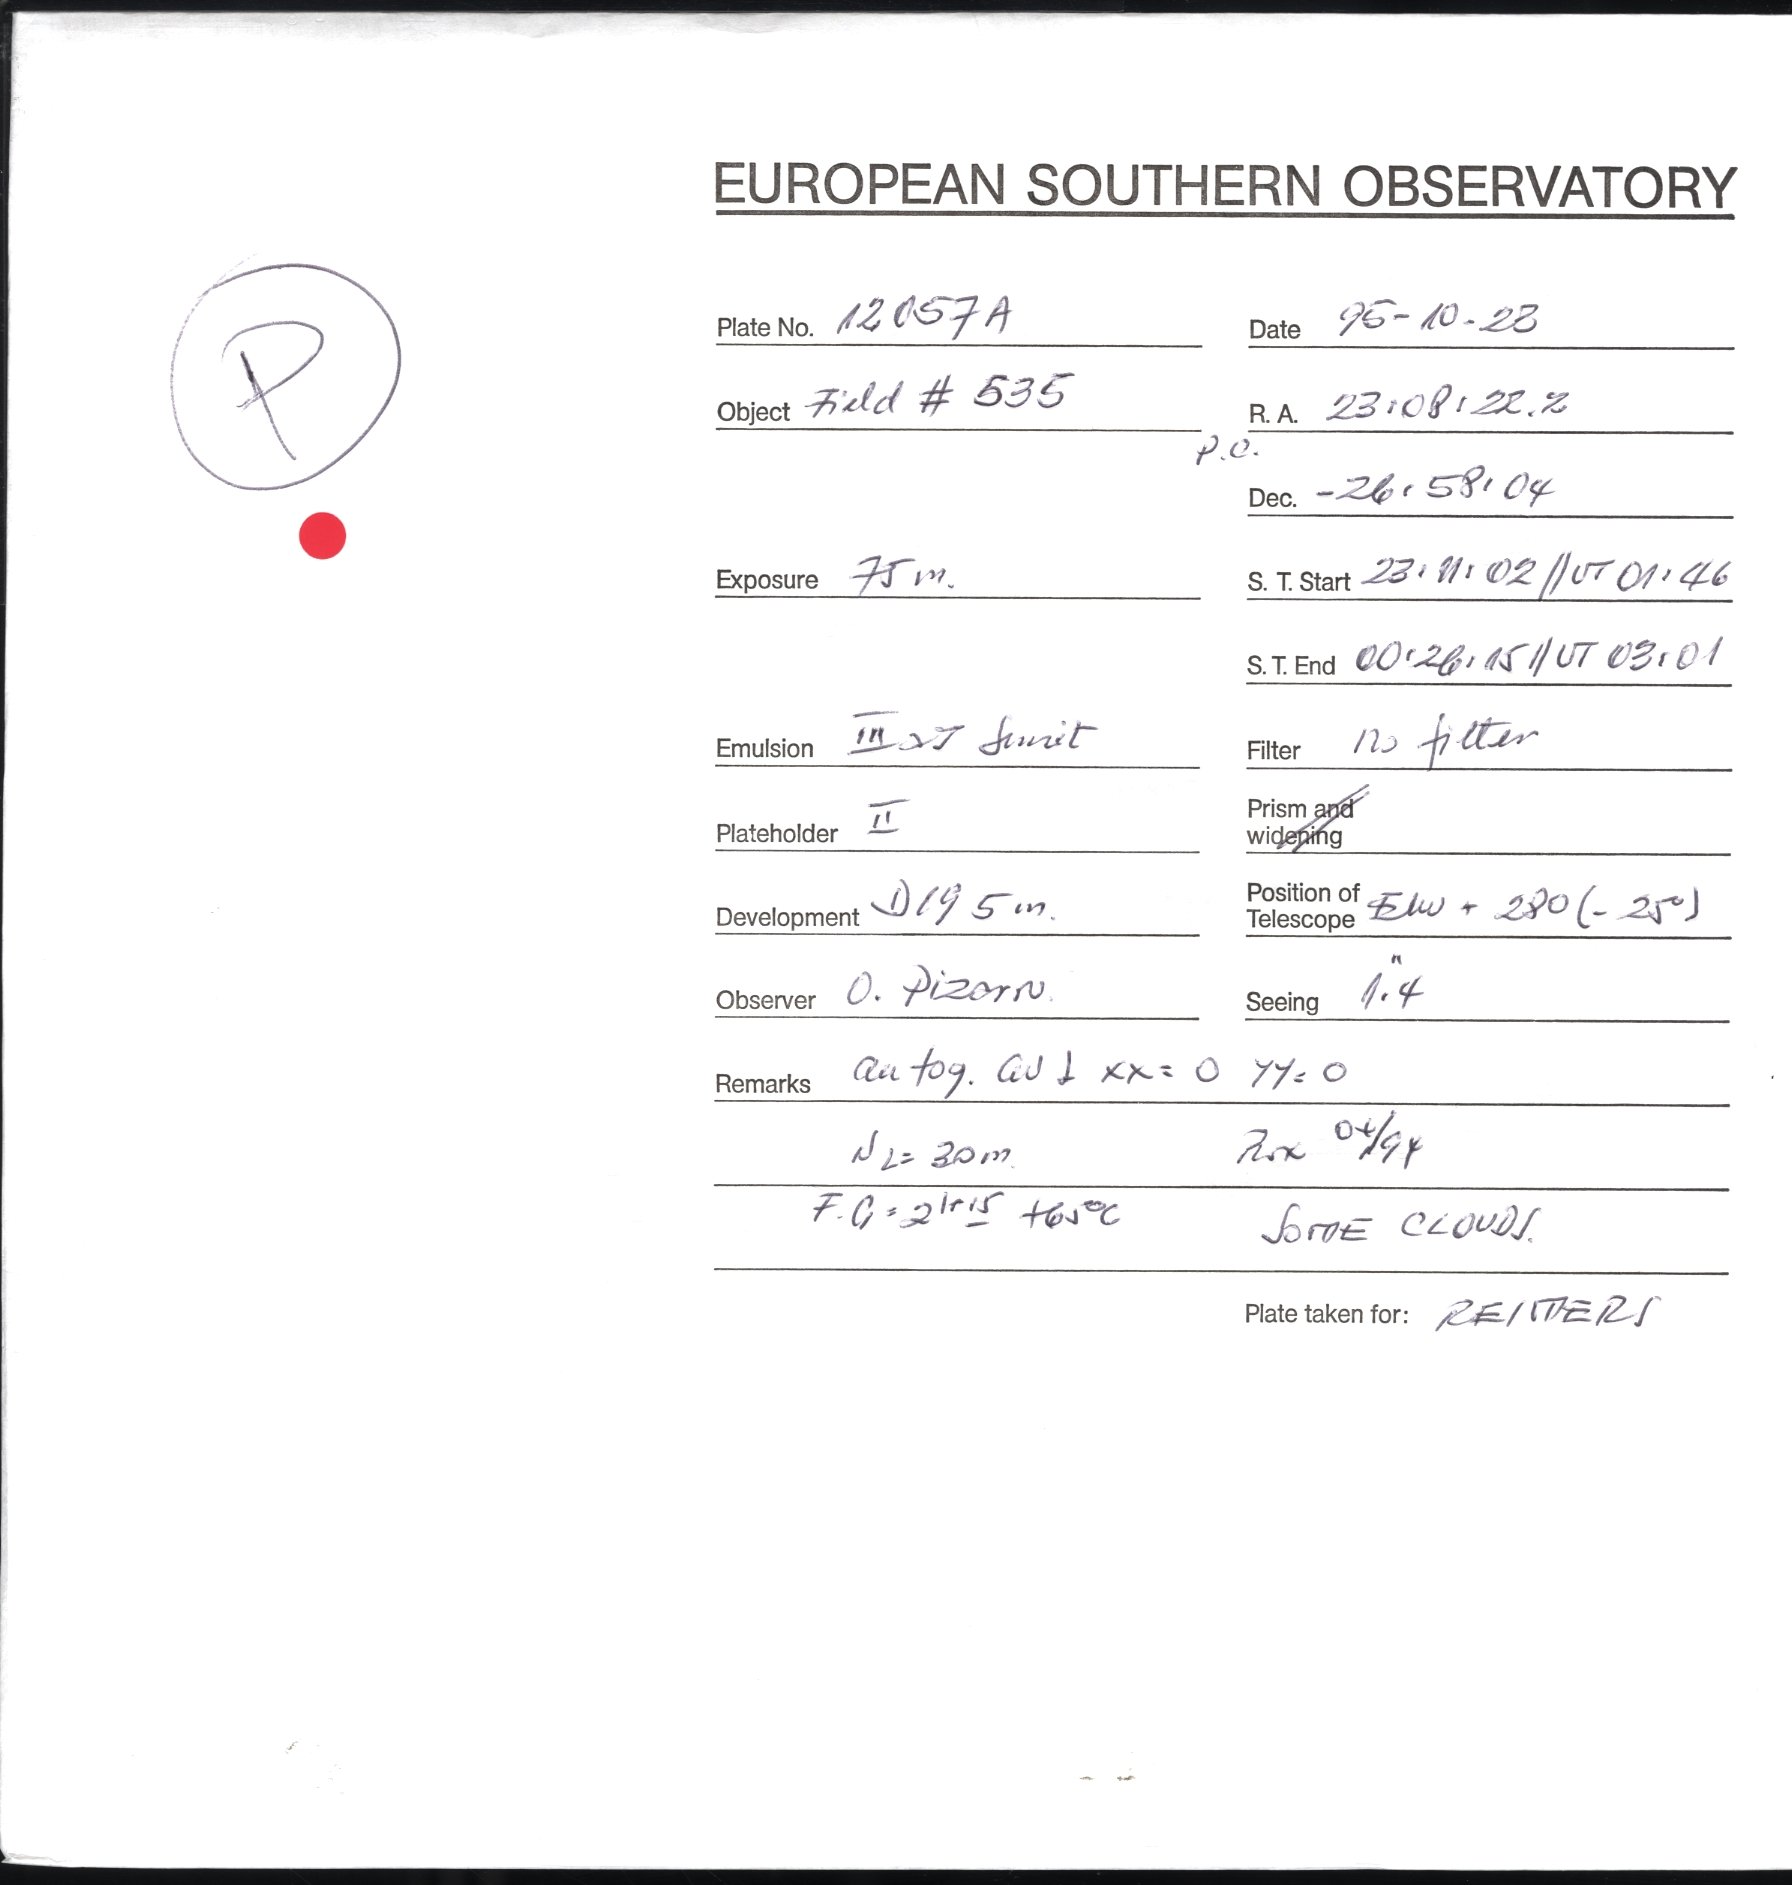 EUROPEAN SOUTHERN OBSERVATORY
P
Plate No. 12057A
Date 95-10-23
Object Field # 535
R. A. 23:08:22.2
P.C.
Dec. -26:58:04
Exposure 75 m.
S. T. Start 23:11:02 // UT 01:46
S. T. End 00:26:15 // UT 03:01
Emulsion III
Filter no filter
Plateholder II
Prism and
widening
Development D19 5 m.
Position of
Telescope + 280 (- 25°)
Observer O. Pizarro
Seeing 1".4
Remarks autog. xx= 0 YY= 0
N2= 30 m.
F.G = 2 hr 15 +65°C
SOME CLOUDS.
Plate taken for: REIMERS